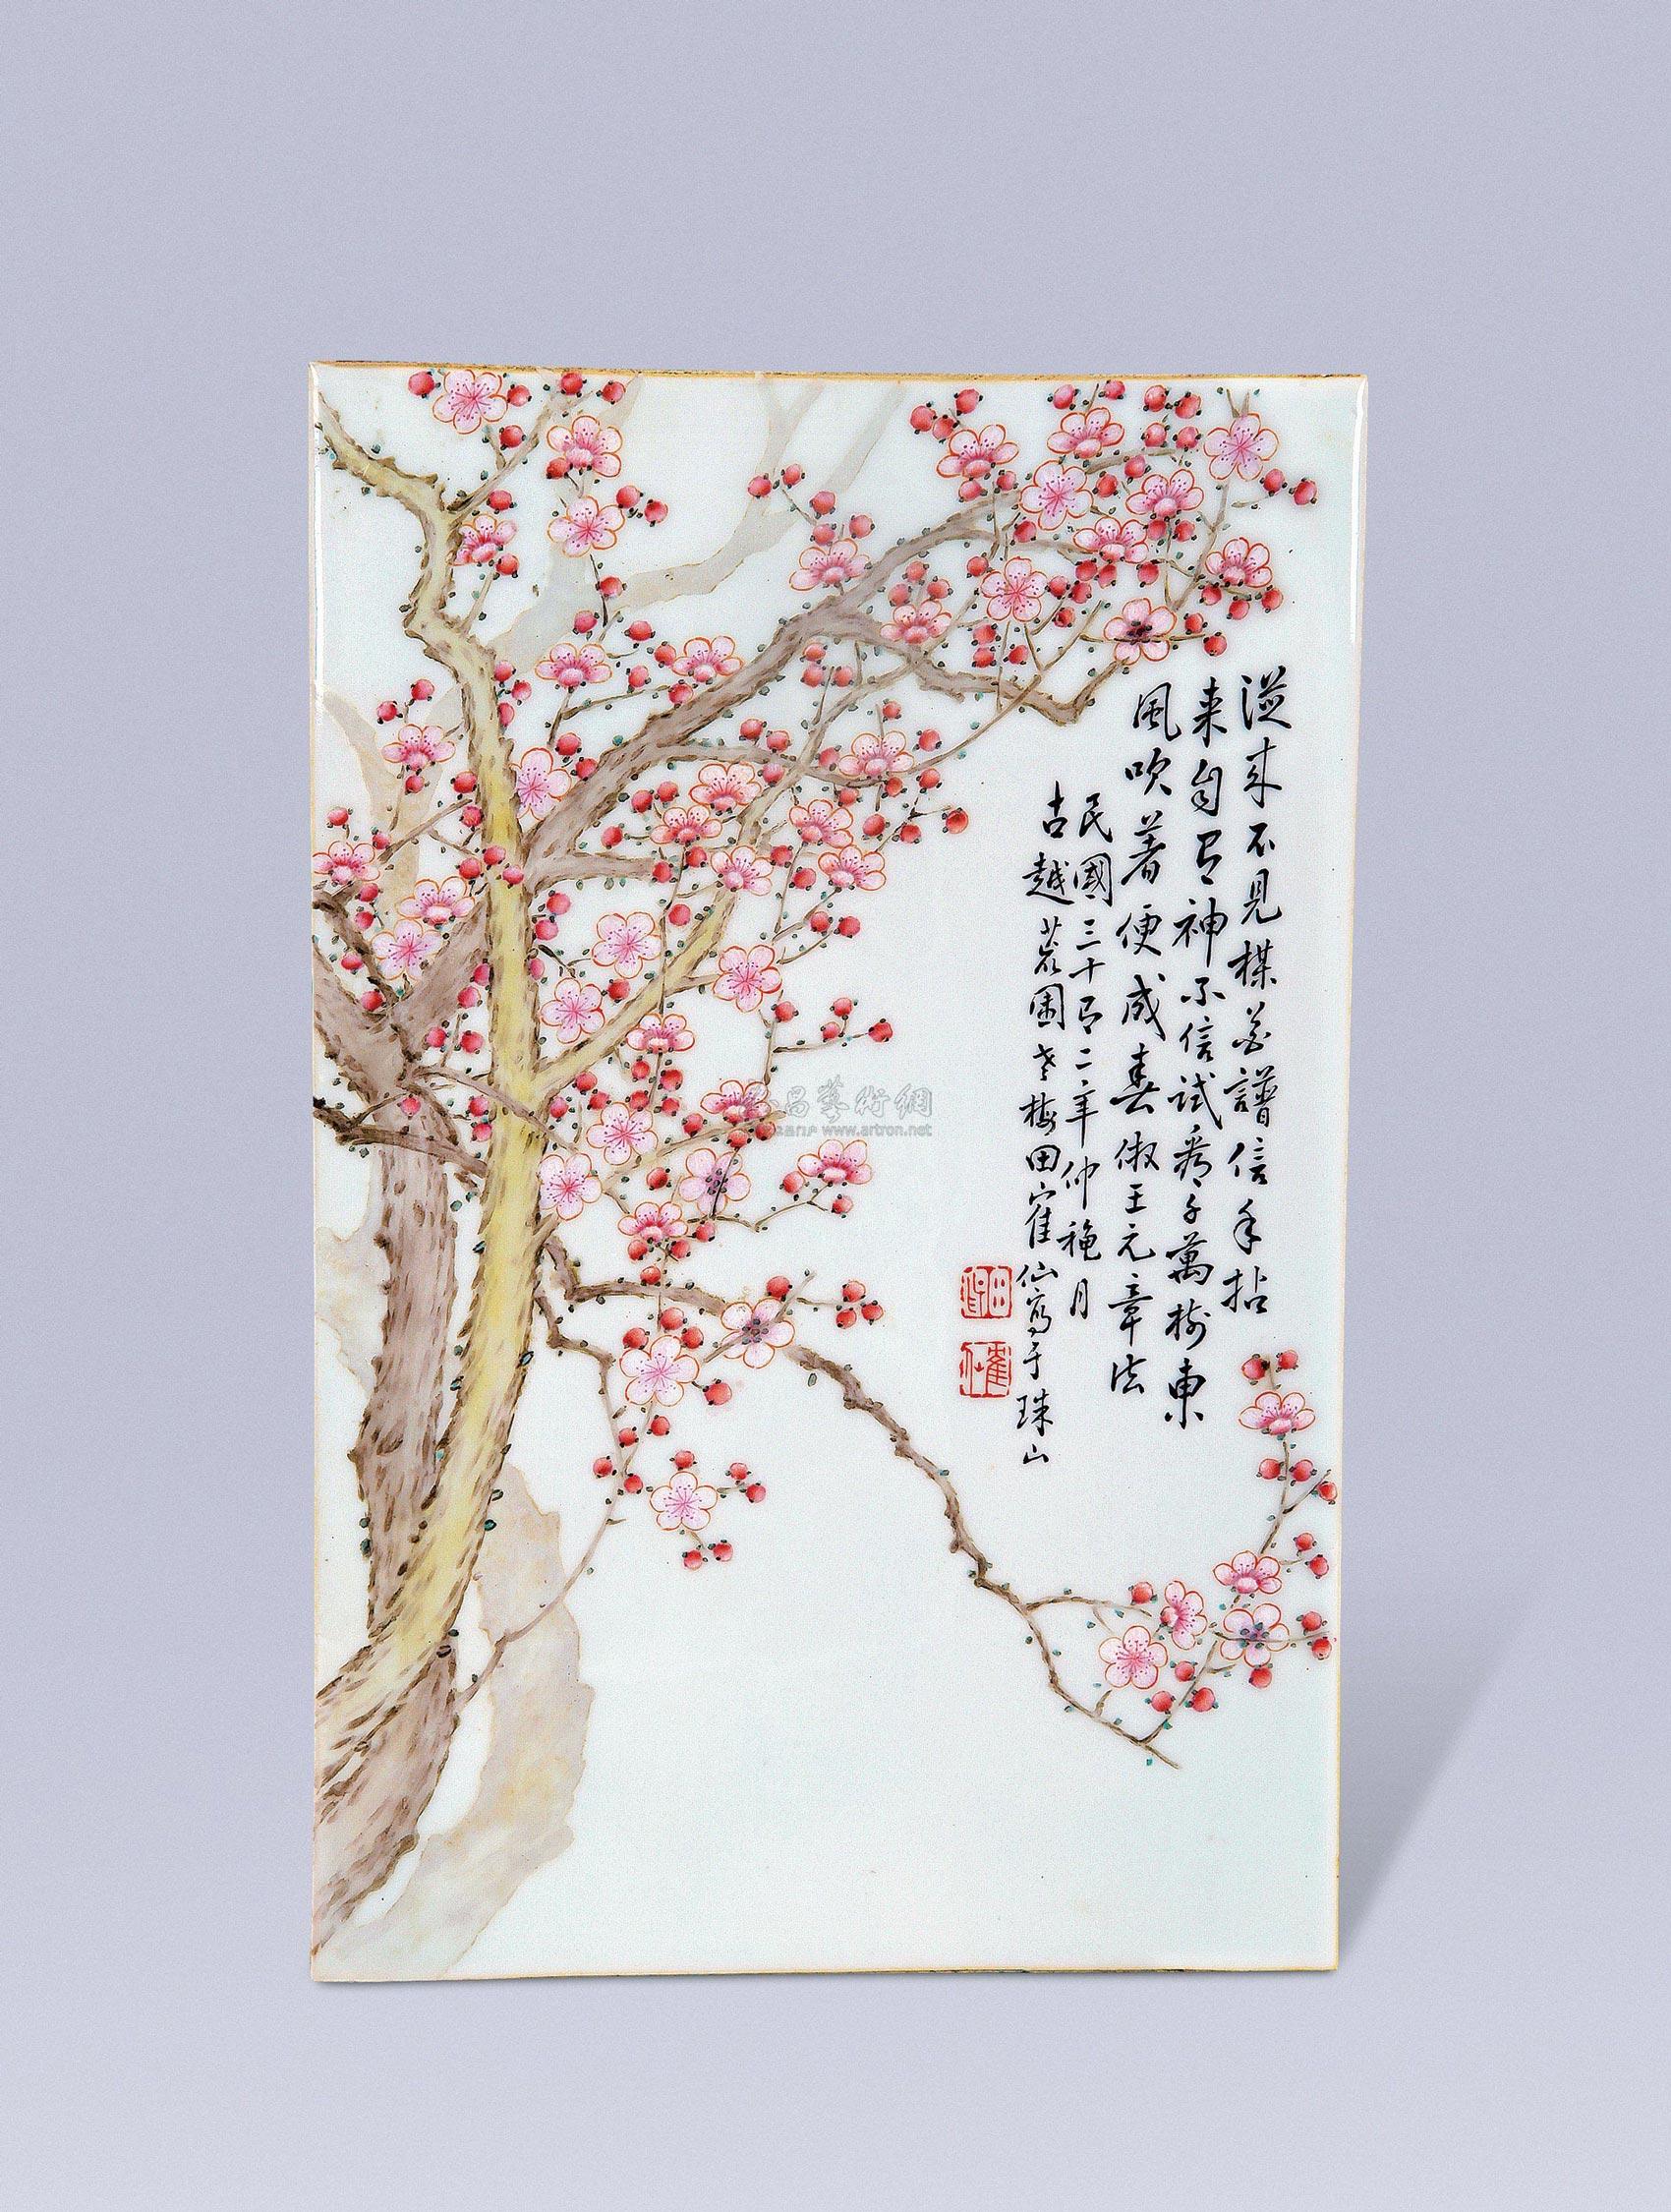 從來不見楳花譜信手拈
來自有神不信試看千萬樹東
風吹著便成春倣王元章法
民國三十有二年仲秋月
古越荒園老梅田寉仙寫于珠山
田
寉仙
昌藝術網
www.artron.net